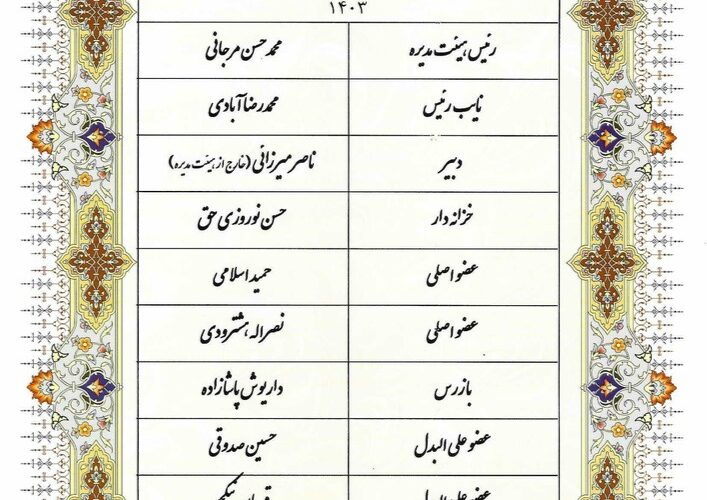 ۱۴۰۳
رئیس هیئت مدیره محمد حسن مرجانی
نایب رئیس محمد رضا آبادی
دبیر ناصر میرزائی (خارج از هیئت مدیره)
خزانه دار حسن نوروزی حق
عضو اصلی حمید اسلامی
عضو اصلی نصراله هشترودی
بازرس داریوش پاشازاده
عضو علی البدل حسین صدوقی
عضو علی البدل